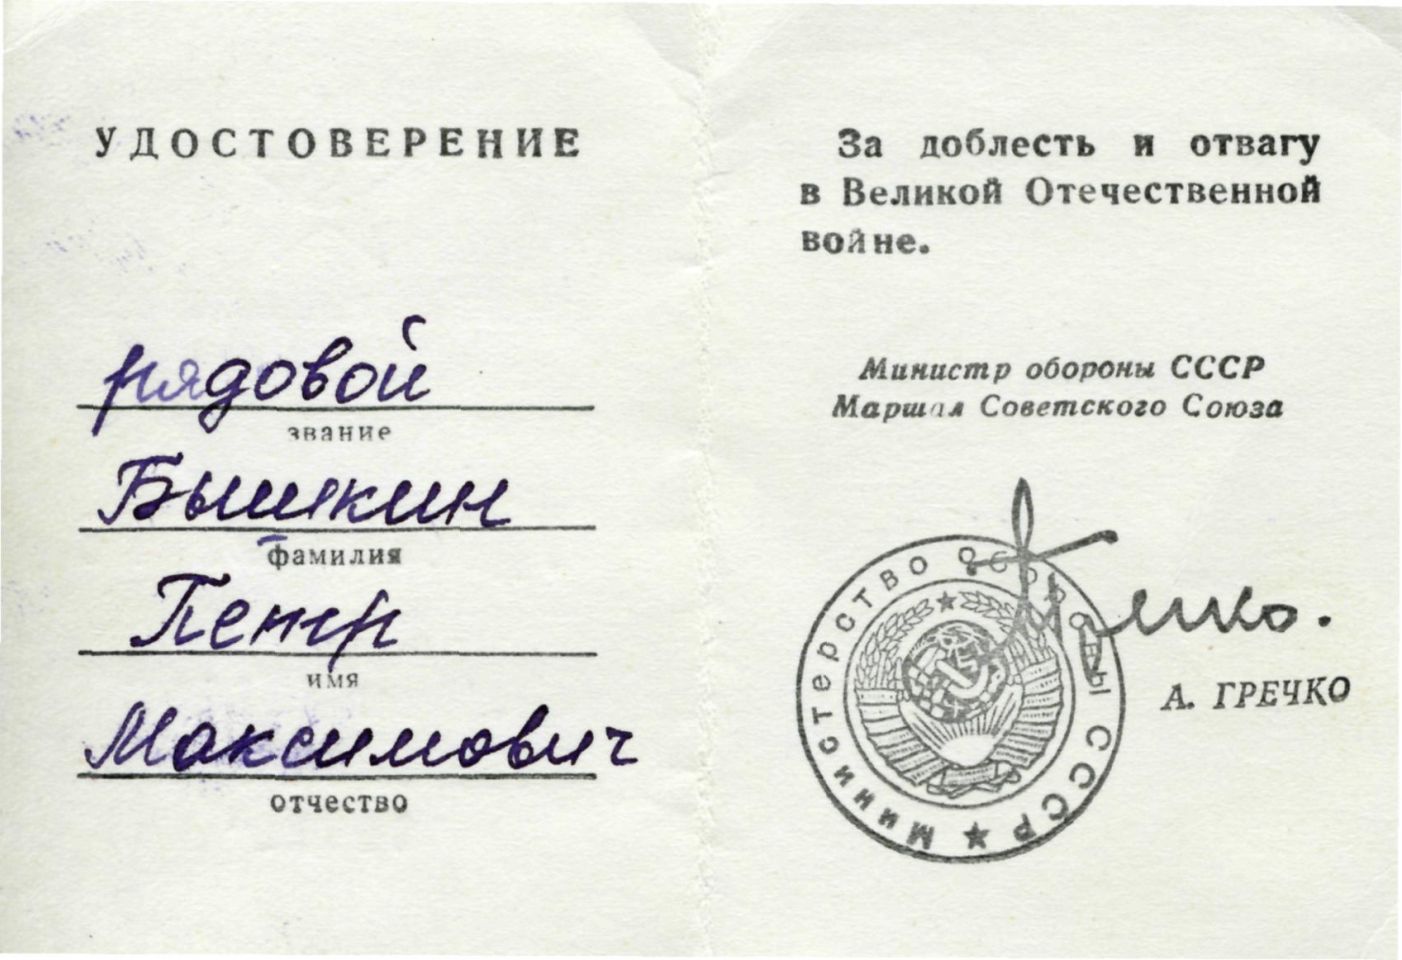 УДОСТОВЕРЕНИЕ
рядовой
звание
Бышкин
фамилия
Петр
имя
Максимович
отчество
За доблесть и отвагу
в Великой Отечественной
войне.
Министр обороны СССР
Маршал Советского Союза
Министерство обороны СССР
А. ГРЕЧКО